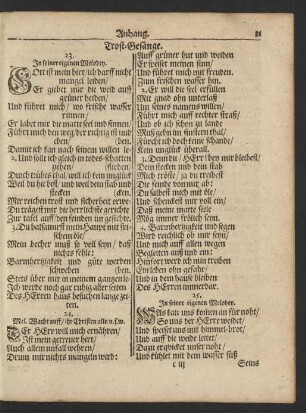 Anhang.
Trost-Gesänge.
23.
In seiner eigenen Melodey.
GOtt ist mein hirt/ ich darff nicht
mangel leiden/
Er giebet mir die weid auff
grüner heiden/
Und führet mich/ wo frische wasser
rinnen/
Er labet mir die matte seel und sinnen/
Führt mich den weg der richtig ist
Damit ich kan nach seinem willen le-
2. Und solt ich gleich in todes-schatten
gehen/
Durch trübes thal/ will ich kein unglück
Weil du hie bist/ und weil dein stab und
Mir reichen trost und sicherheit
Du trägst mir
Zur tafel auff den feinden im gesichte/
3. Du balsamest mein Haupt mit fri-
schem öle/
Mein becher muß so voll seyn/ daß
nichts fehle/
Barmhertzigkeit und güte werden
schweben
Stets über mir in meinem gantzen le-
Ich werde noch gar ruhig aller seiten
Des HErren haus besuchen lange zei-
ten.
24.
Mel. Wacht auff/ ihr Christen alle
DEr HErr will mich ernähren/
Ist mein getreuer hirt/
Auch allem unfall wehren/
Drum mir nichts mangeln wird:
Auff grüner hut und weiden
Er heisset meinen sinn/
Und führet mich mit freuden/
Zum frischen wasser hin.
2. Er will die seel erfüllen
Mit gnad ohn unterlaß
Um seines namens willen/
Führt mich auff rechter straß/
Und ob ich schon zu lande
Muß gehn im finstern thal/
Fürcht ich doch keine schande/
Kein unglück überall.
3. Denn du/ HErr! bey mir bleibest/
Dein stecken und dein stab
Mich tröstet und mir treibest
Die feinde von mir ab:
Du salbest mich mit öle/
Und schenckest mir voll ein/
Daß meine matte seele
Mög immer frölich seyn.
4. Barmhertzigkeit und segen
Wird reichlich ob mir seyn/
Und mich auff allen wegen
Begleiten auß und ein:
Hinfort werd ich mein treiben
Einleben ohn gefahr/
Und in dem hause bleiben
Des HErren immerdar.
25.
In seiner eigenen Melodey.
WAs kan uns kommen an für noht/
So uns der HErre weidet/
Und speiset uns mit himmel-brot/
Und auff die weide leitet/
Dazu erquicket unser noht/
Und kühlet mit dem wasser süß
C iij
Seins